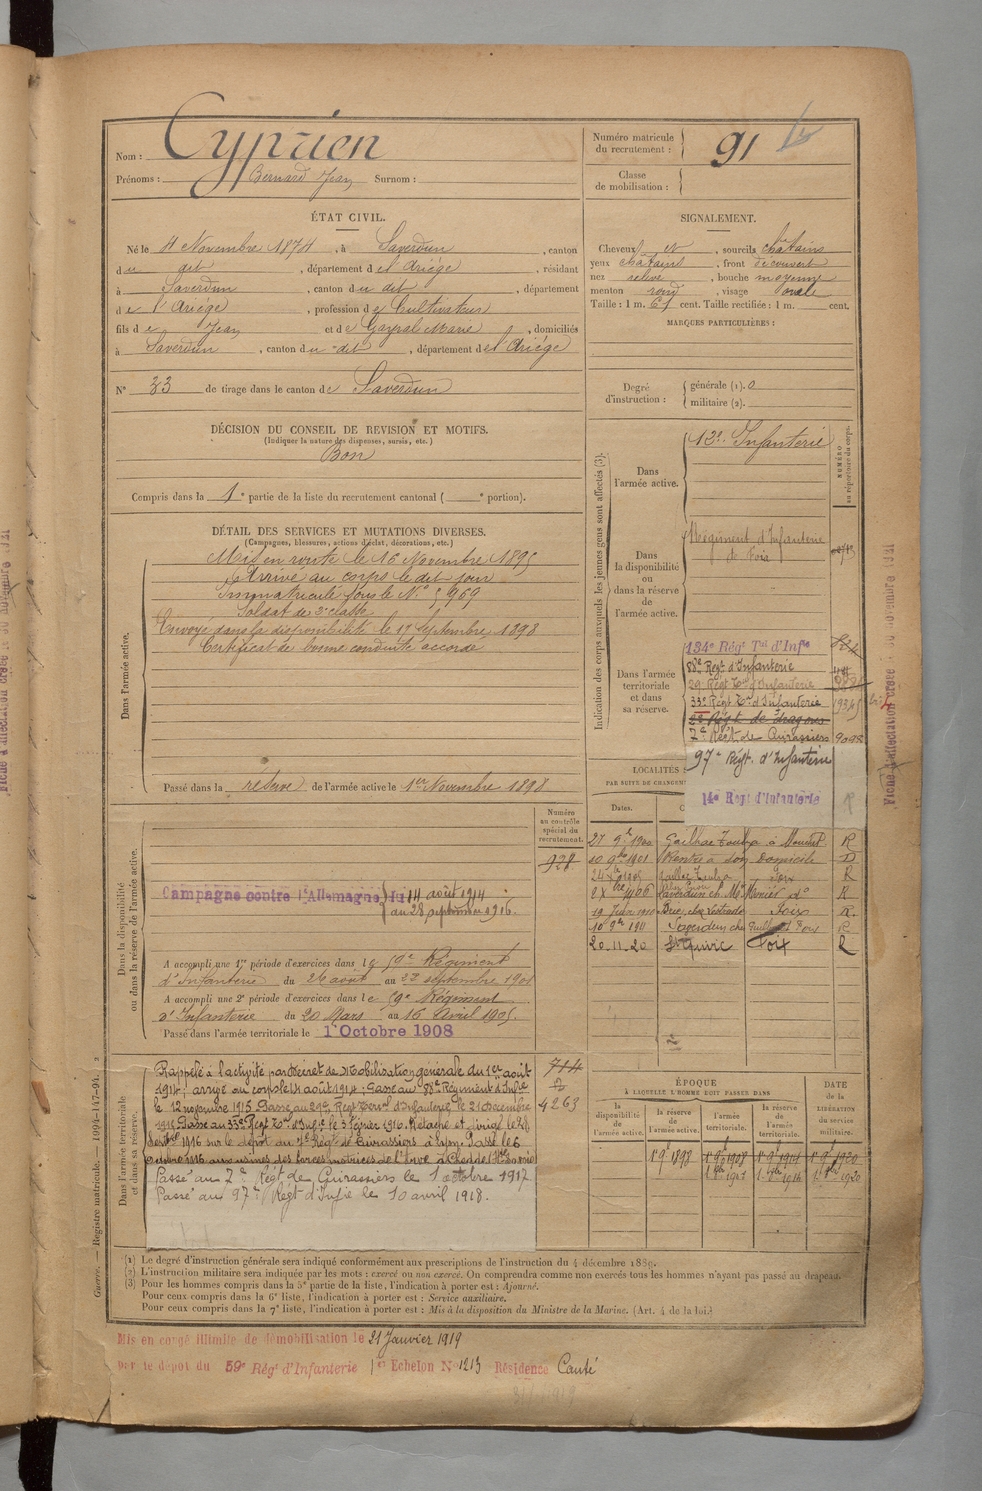 Nom : Cyprien
Prénoms : Bernard Jean Surnom :
Numéro matricule du recrutement : 91
Classe de mobilisation :
ÉTAT CIVIL.
Né le 4 Novembre 1874, à Saverdun, canton
du dit, département de l'Ariège, résidant
à Saverdun, canton du dit, département
de l'Ariège, profession de Cultivateur
fils de Jean et de Gayral Marie, domiciliés
à Saverdun, canton du dit, département de l'Ariège
N° 33 de tirage dans le canton de Saverdun
SIGNALEMENT.
Cheveux et, sourcils châtains
yeux châtains, front découvert
nez relevé, bouche moyenne
menton rond, visage ovale
Taille : 1 m. 61 cent. Taille rectifiée : 1 m. cent.
MARQUES PARTICULIÈRES :
Degré d'instruction : générale (1). 0
militaire (2).
DÉCISION DU CONSEIL DE REVISION ET MOTIFS.
(Indiquer la nature des dispenses, sursis, etc.)
Bon
Compris dans la 1e partie de la liste du recrutement cantonal ( e portion).
DÉTAIL DES SERVICES ET MUTATIONS DIVERSES.
(Campagnes, blessures, actions d'éclat, décorations, etc.)
Dans l'armée active.
Mis en route le 16 Novembre 1895
Arrivé au corps le dit jour
Immatriculé sous le N° 5969
Soldat de 2e classe
Envoyé dans la disponibilité le 17 Septembre 1898
Certificat de bonne conduite accordé
Passé dans la réserve de l'armée active le 1er Novembre 1898
Indication des corps auxquels les jeunes gens sont affectés (3).
NUMÉRO au répertoire du corps.
Dans l'armée active.
12e Infanterie
Dans la disponibilité ou dans la réserve de l'armée active.
Régiment d'Infanterie
de Foix
Dans l'armée territoriale et dans sa réserve.
134e Régt Tal d'Infie
88e Régt d'Infanterie
29e Régt Ter d'Infanterie
33e Régt Ter d'Infanterie 19345
2e Régt de dragons
7e Régt de Cuirassiers 9098
97e Régt. d'Infanterie
14e Régt d'Infanterie R
LOCALITÉS
PAR SUITE DE CHANGEM
Dates.
20.11.20 St Quirc Foix R
Dans la disponibilité ou dans la réserve de l'armée active.
Numéro au contrôle spécial du recrutement.
928
Campagne contre l'Allemagne, du 14 août 1914
au 28 septembre 1916.
A accompli une 1re période d'exercices dans le 59e Régiment
d'Infanterie du 26 août au 22 septembre 1901
A accompli une 2e période d'exercices dans le 59e Régiment
d'Infanterie du 20 Mars au 16 Avril 1905.
Passé dans l'armée territoriale le 1 Octobre 1908
Dans l'armée territoriale et dans sa réserve.
714
4263
Rappelé à l'activité par Décret de Mobilisation générale du 1er août
1914; arrivé au corps le 14 août 1914; Passé au 88e Régiment d'Infie
le 12 novembre 1915 Passé au 29e Régt Terral d'Infanterie le 21 Décembre
1915 Passé au 33e Régt Tal d'Infie le 3 février 1916.
Septbre 1916 sur le dépôt du 7e Régt de Cuirassiers à Lyon. Passé le 6
octobre 1916 aux usines des forces motrices de l'Arve à Chedde (Hte Savoie)
Passé au 7e Régt de Cuirassiers le 1 octobre 1917
Passé au 97e Régt d'Infie le 10 avril 1918.
ÉPOQUE
À LAQUELLE L'HOMME DOIT PASSER DANS
DATE DE LA LIBÉRATION DU SERVICE militaire.
la disponibilité de l'armée active.
la réserve de l'armée active.
l'armée territoriale.
la réserve de l'armée territoriale.
1 9e 1898 1 9e 1908 1 9e 1914 1 9e 1920
(1) Le degré d'instruction générale sera indiqué conformément aux prescriptions de l'instruction du 4 décembre 1889.
(2) L'instruction militaire sera indiquée par les mots : exercé ou non exercé. On comprendra comme non exercés tous les hommes n'ayant pas passé au drapeau.
(3) Pour les hommes compris dans la 5e partie de la liste, l'indication à porter est : Ajourné.
Pour ceux compris dans la 6e liste, l'indication à porter est : Service auxiliaire.
Pour ceux compris dans la 7e liste, l'indication à porter est : Mis à la disposition du Ministre de la Marine. (Art. 4 de la loi.)
Guerre. — Registre matricule. — 1094-147-94.
Mis en congé illimité de démobilisation le 21 Janvier 1919
par le dépôt du 59e Régt d'Infanterie 1er Echelon N° 1213 Résidence Canté